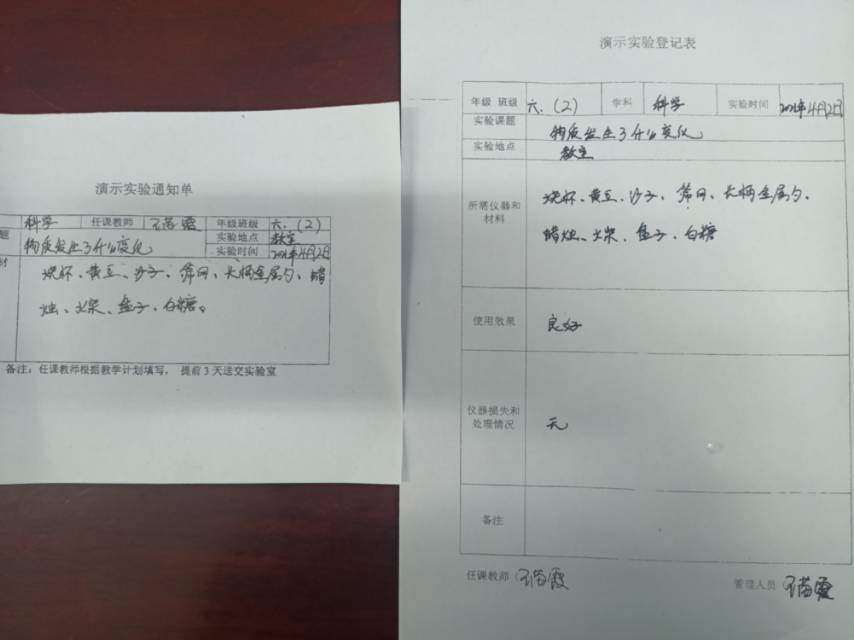 演示实验通知单
科学 任课教师 王苗霞 年级班级 六.(2)
题 物质发生了什么变化 实验地点 教室
实验时间 4月2日
材 烧杯、黄豆、沙子、筛网、长柄金属勺、蜡
烛、火柴、盘子、白糖。
备注：任课教师根据教学计划填写，提前3天送交实验室
演示实验登记表
年级 班级 六.(2) 学科 科学 实验时间 4月2日
实验课题 物质发生了什么变化
实验地点 教室
所需仪器和
材料
烧杯、黄豆、沙子、筛网、长柄金属勺、
蜡烛、火柴、盘子、白糖
使用效果 良好
仪器损失和
处理情况
无
备注
任课教师 王苗霞 管理人员 王苗霞